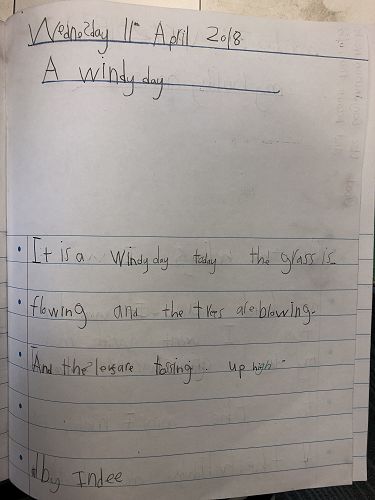 Wednesday 11th April 2018
A windy day
It is a windy day today the grass is
flowing and the tres are blowing.
And the levs are tossing up high.
by Indee